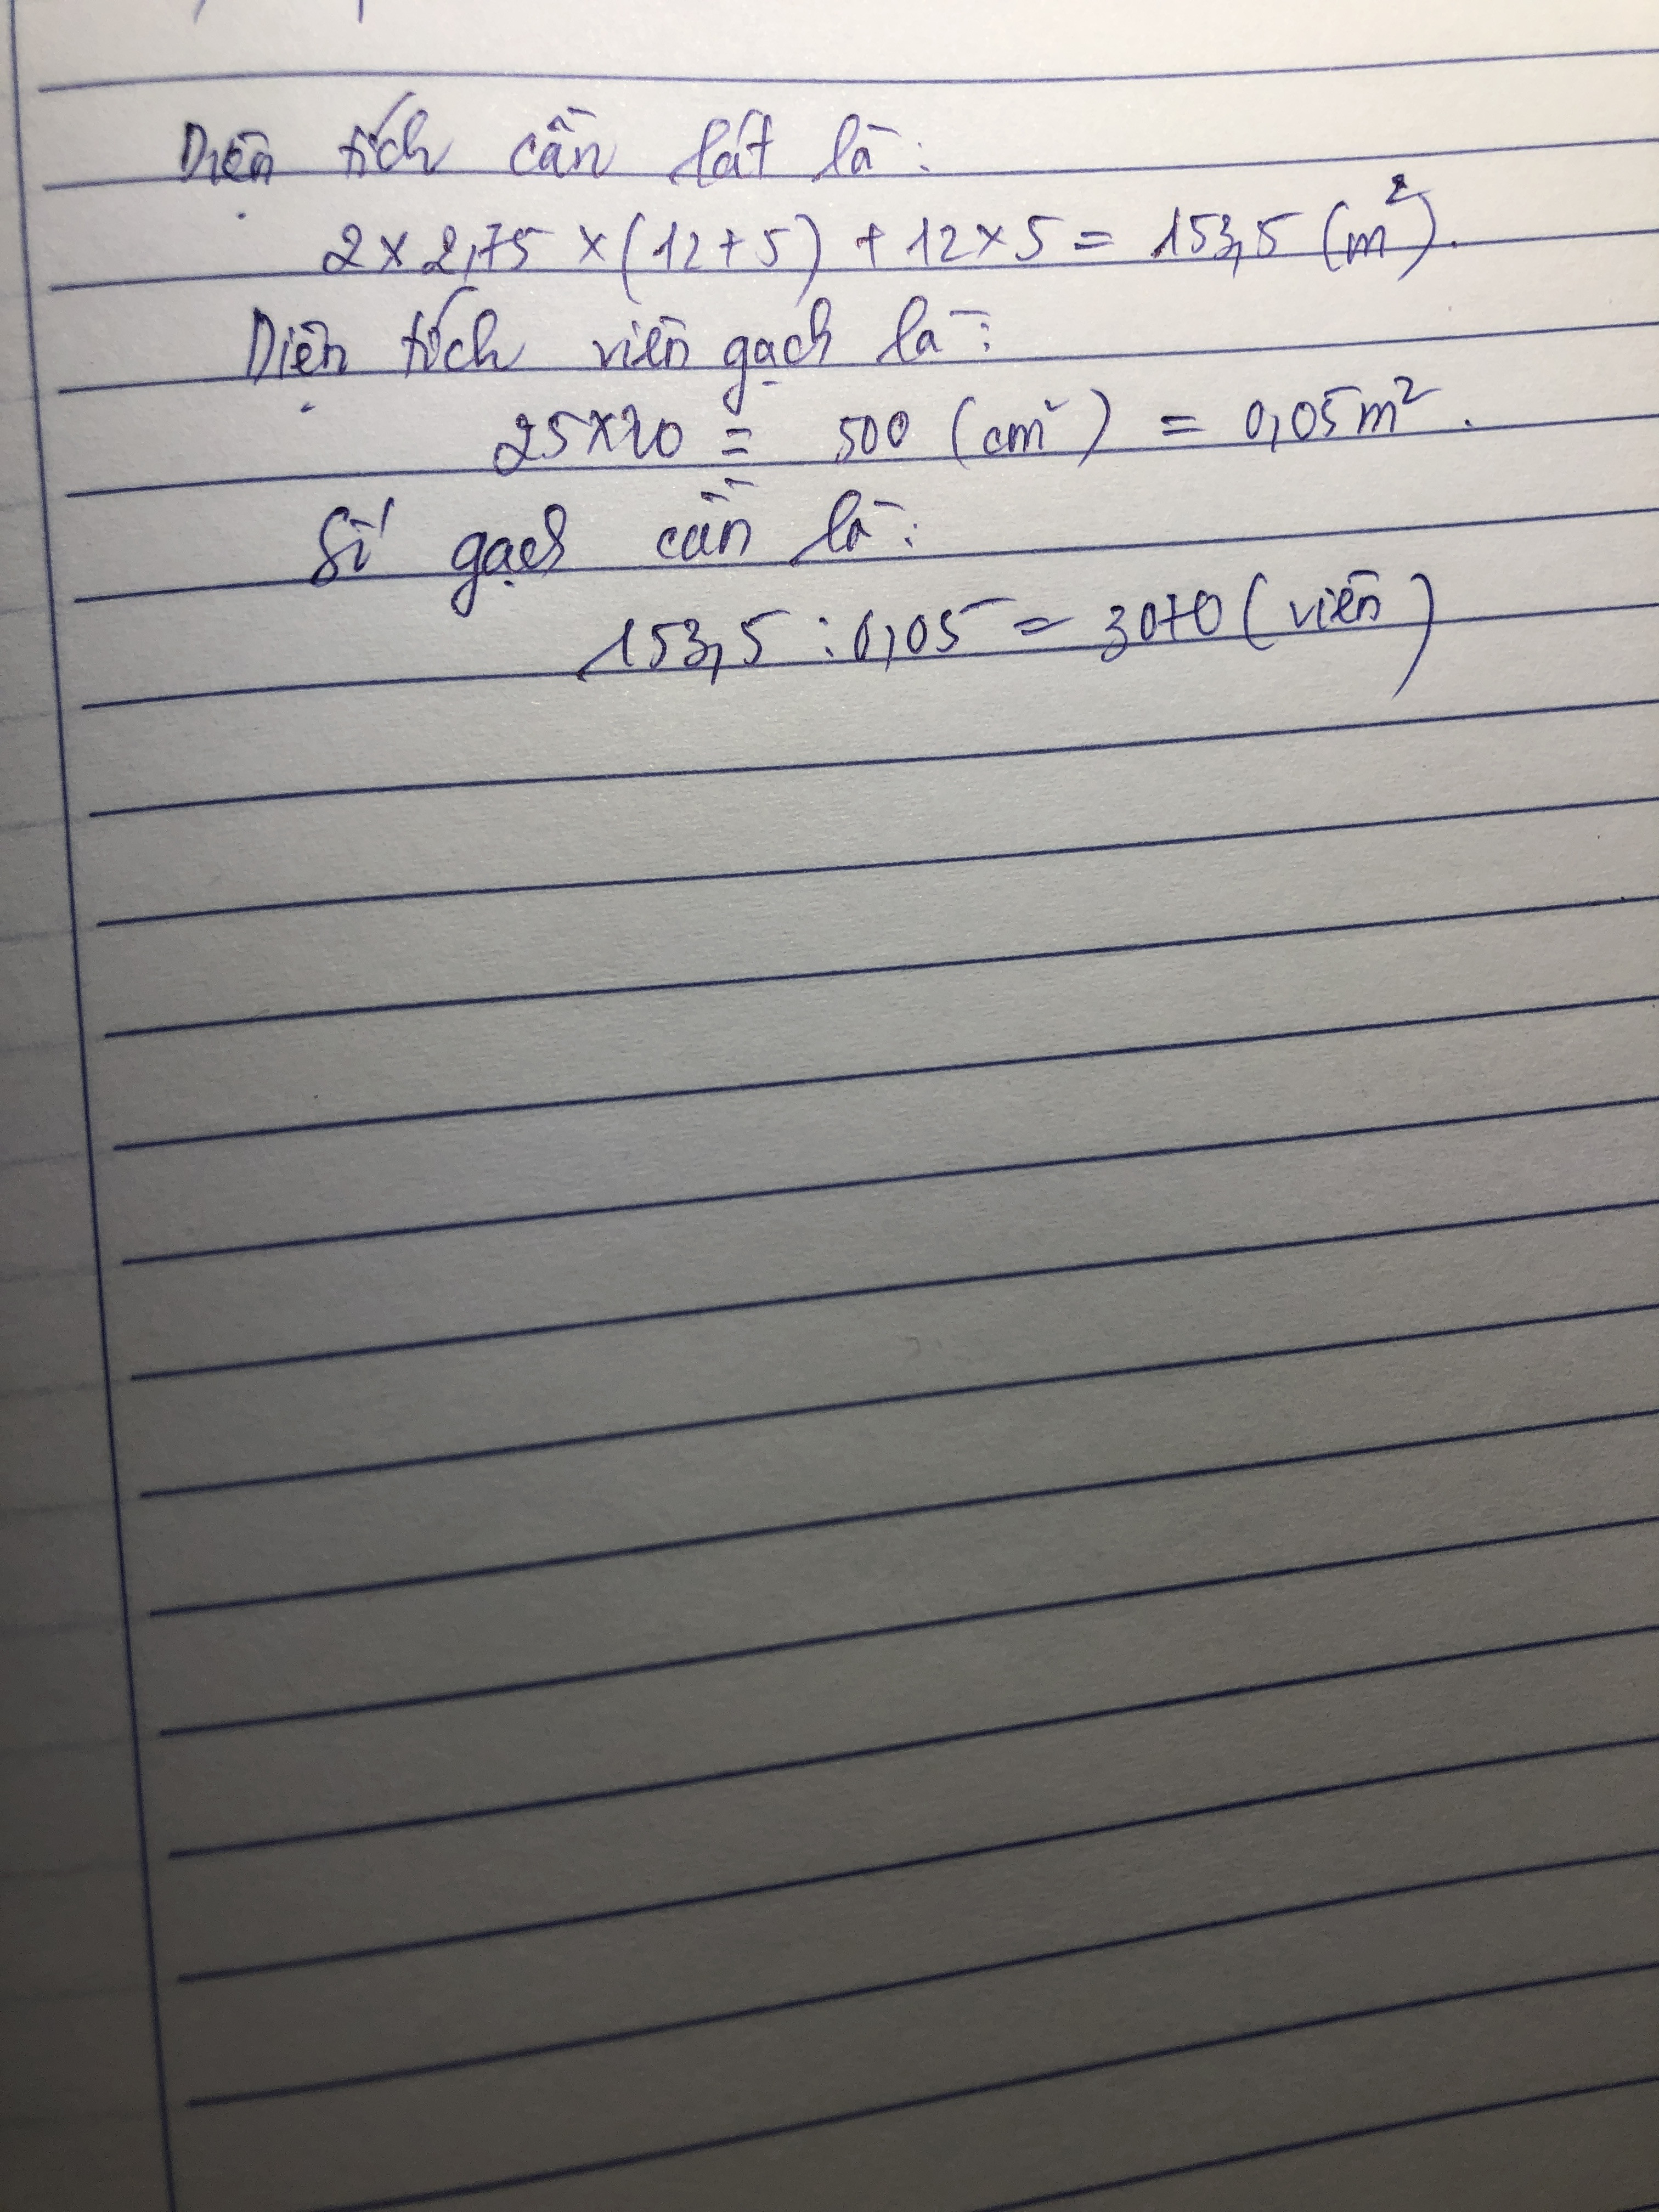 Diện tích cần lát là:
2 x 2,75 x (12+5) + 12 x 5 = 153,5 (m²).
Diện tích viên gạch là:
25x20 = 500 (cm²) = 0,05m².
Số gạch cần là:
153,5 : 0,05 = 3070 (viên)